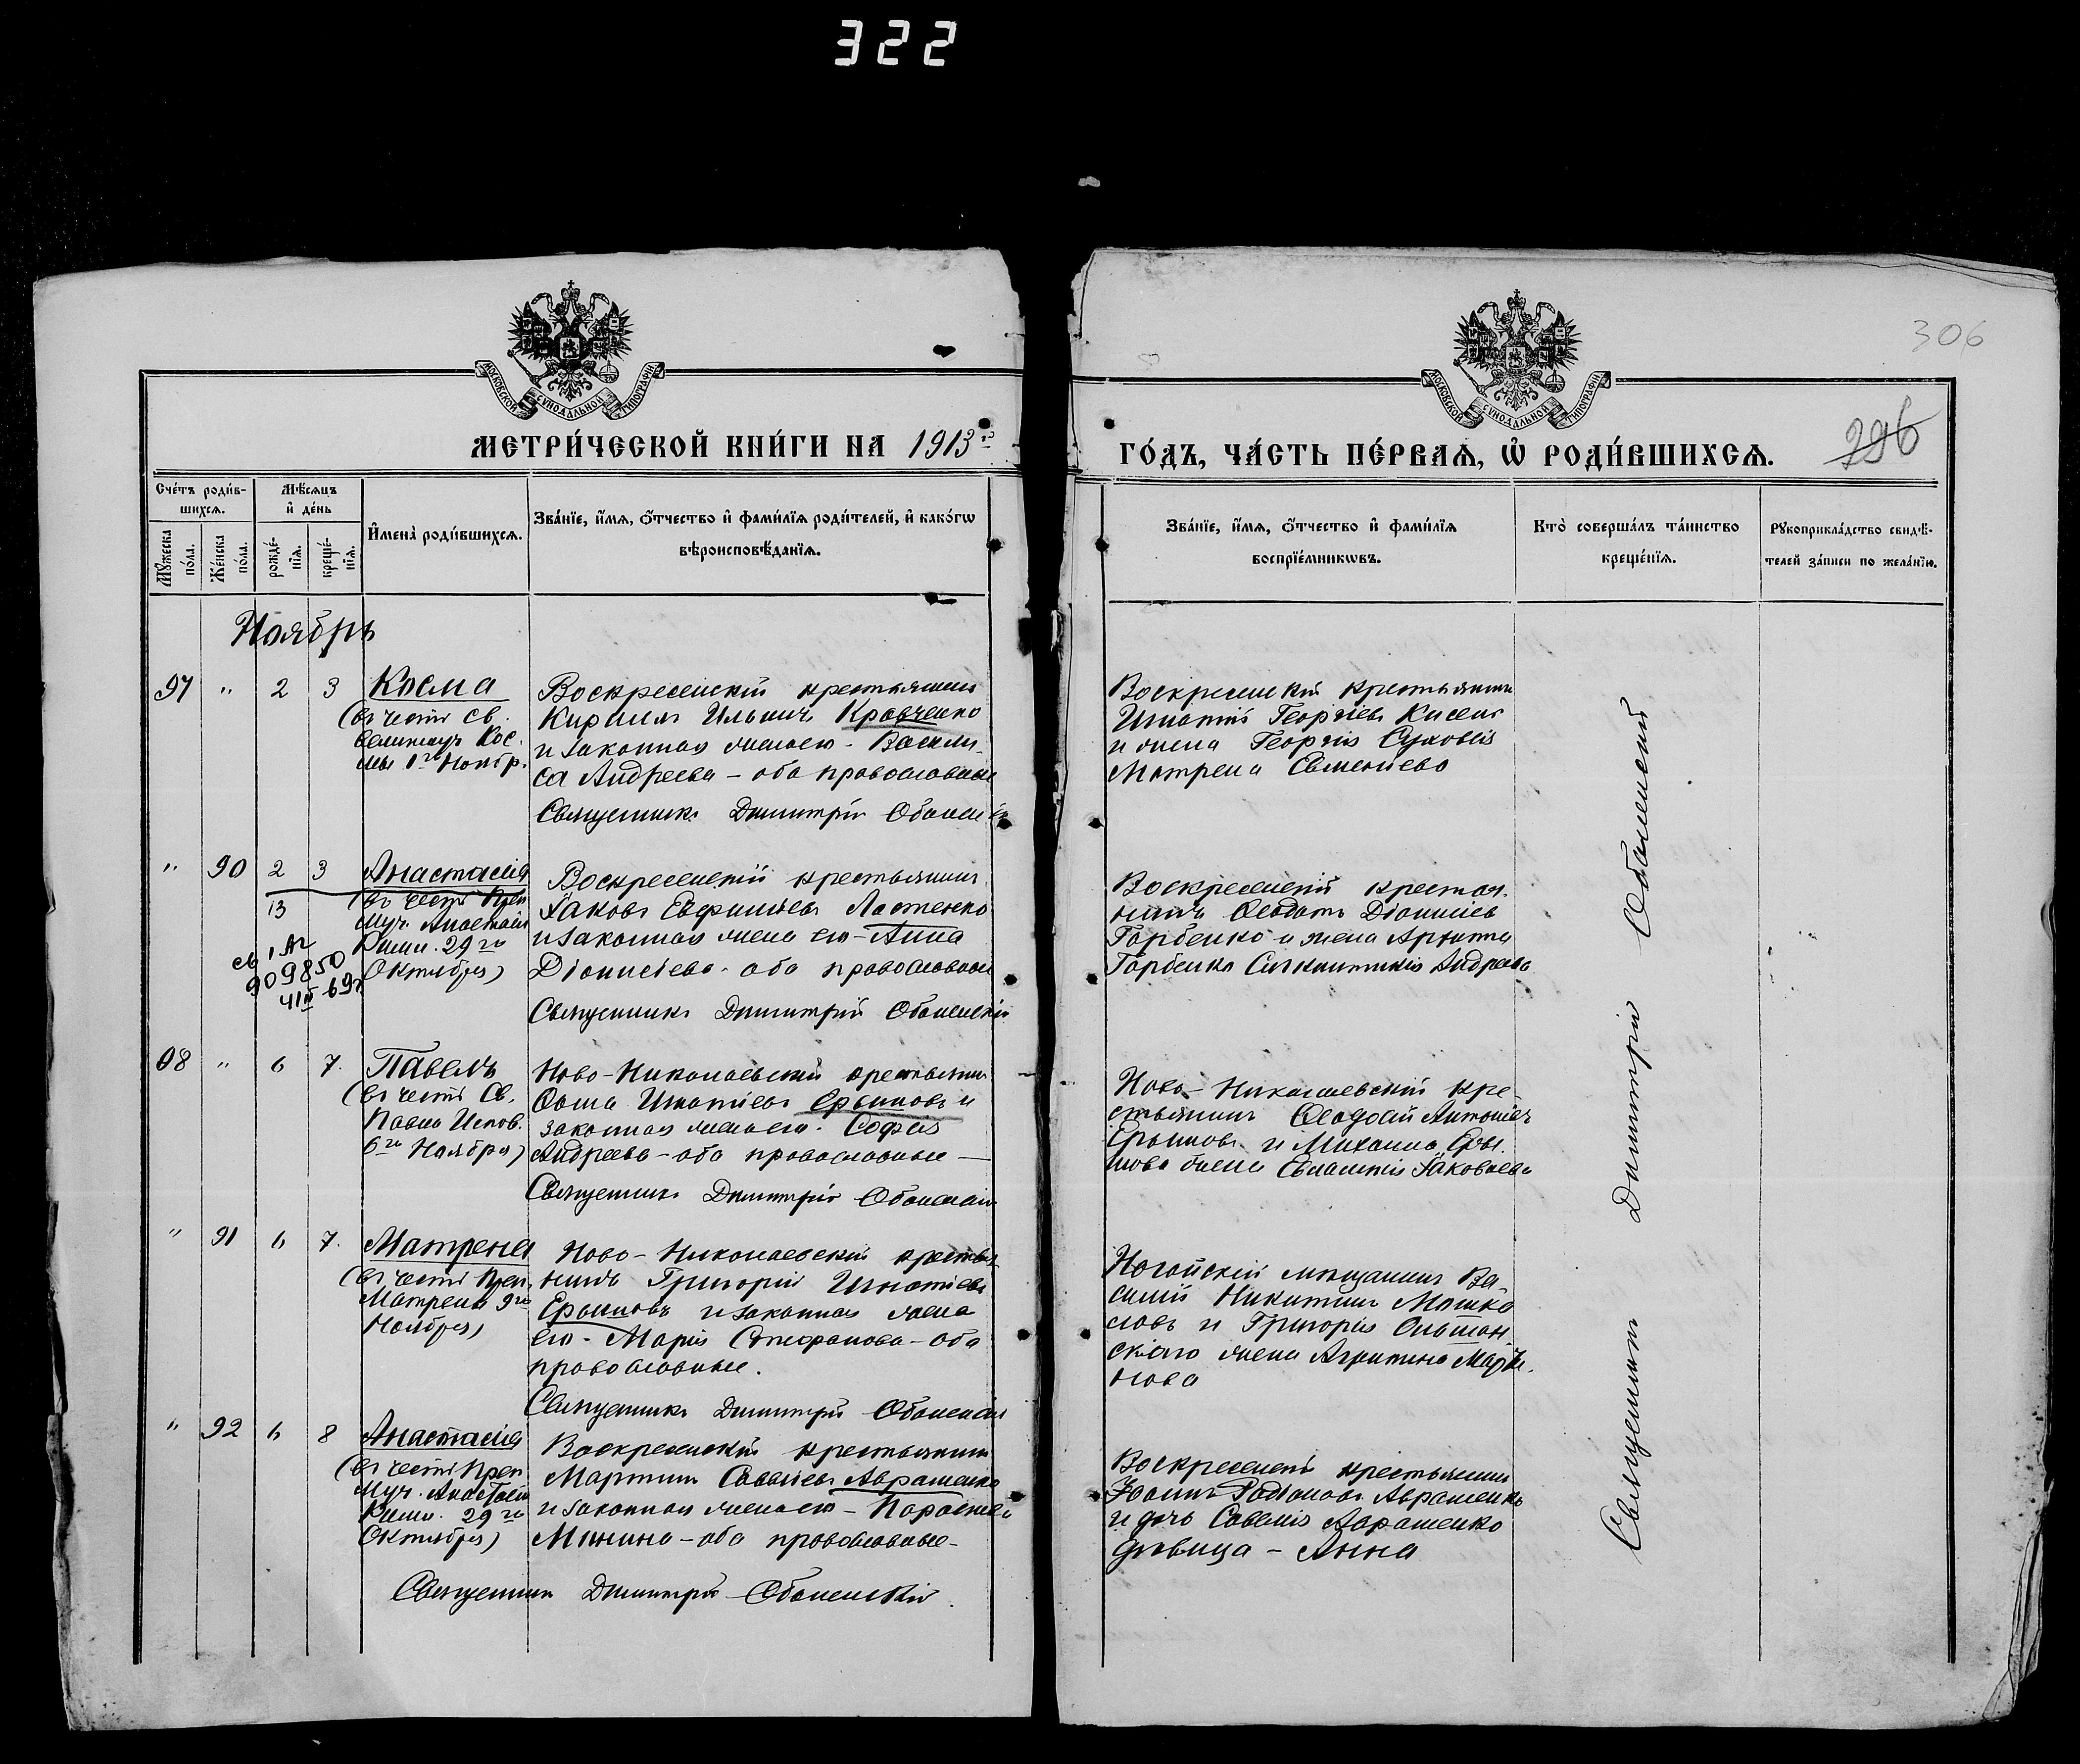 322
306
296
МОСКОВСКОЙ СѴНОДАЛЬНОЙ ТИПОГРАФІИ
МОСКОВСКОЙ СѴНОДАЛЬНОЙ ТИПОГРАФІИ
МЕТРИ́ЧЕСКОЙ КНИ́ГИ НА 1913 го
ГО́ДЪ, ЧА́СТЬ ПЕ́РВАѦ, Ѡ҆ РОДИ́ВШИХСѦ.
Сче́тъ роди́в-
шихсѧ.
Мꙋ́жеска по́ла.
Же́нска по́ла.
Мѣ́сѧцъ
и҆ де́нь
рожде́-
нїѧ.
креще́-
нїѧ.
И҆мена̀ роди́вшихсѧ.
Зва́нїе, и҆́мѧ, ѻ҆́тчество и҆ фами́лїѧ роди́телей, и҆ како́гѡ
вѣроисповѣ́данїѧ.
Зва́нїе, и҆́мѧ, ѻ҆́тчество и҆ фами́лїѧ
воспрїе́мникѡвъ.
Кто̀ соверша́лъ та́инство
креще́нїѧ.
Рꙋкоприкла́дство свидѣ́-
телей за́писи по жела́нїю.
Ноябрь
97 " 2 3 Косма
(въ честь св.
Космы 1го Ноябр.
Воскресенскій крестьянинъ
Кириллъ Ильинъ Кравченко
и законная жена его - Васили-
са Андреева - оба православные
Священникъ Димитрій Оболенскій
Воскресенскій крестьянинъ
Игнатій Георгіевъ Киселъ
и жена Георгія Суховія
Матрена Семенова
" 90 2 3 Анастасія
13
(въ честь Преп.
Муч. Анастасіи
Римл. 29го
Октября)
909850
Воскресенскій крестьянинъ
Іаковъ Евфиміевъ Ластенко
и законная жена его - Анна
Діонисіева - оба православные
Священникъ Димитрій Оболенскій
Воскресенскій крестья-
нинъ Ѳеодотъ Діонисіевъ
Горбенко и жена
Горбенко Синклитикія Андреева
98 " 6 7. Павелъ
(въ честь Св.
Павла Испов.
6го Ноября)
Ново-Николаевскій крестьянинъ
Ѳома Игнатіевъ Ерыновъ и
законная жена его - Софія
Андреева - оба православные
Священникъ Димитрій Оболенскій
Ново-Николаевскій кре-
стьянинъ Ѳеодосій Антоніевъ
Ерыновъ и Михаила Еры-
нова жена Евлампія Іаковлева
" 91 6 7. Матрена
(въ честь Преп.
Матрены 9го
Ноября)
Ново-Николаевскій крестья-
нинъ Григорій Игнатіевъ
Ерыновъ и законная жена
его - Марія Стефанова - оба
православные.
Священникъ Димитрій Оболенскій
Ногайскій мѣщанинъ Ва-
силій Никитинъ Мошка-
ловъ и Григорія Ольшан-
скаго жена Агриппина Марты-
нова
" 92 6 8 Анастасія
(въ честь Преп.
Муч. Анастасіи
Римл. 29го
Октября)
Воскресенскій крестьянинъ
Мартинъ Савеліевъ Аврашенко
и законная жена его - Параскева
Минина - оба православные -
Священникъ Димитрій Оболенскій
Воскресенскій крестьянинъ
Іоаннъ Родіоновъ Аврашенко
и дочь Савелія Аврашенко
дѣвица - Анна
Священникъ Димитрій Оболенскій